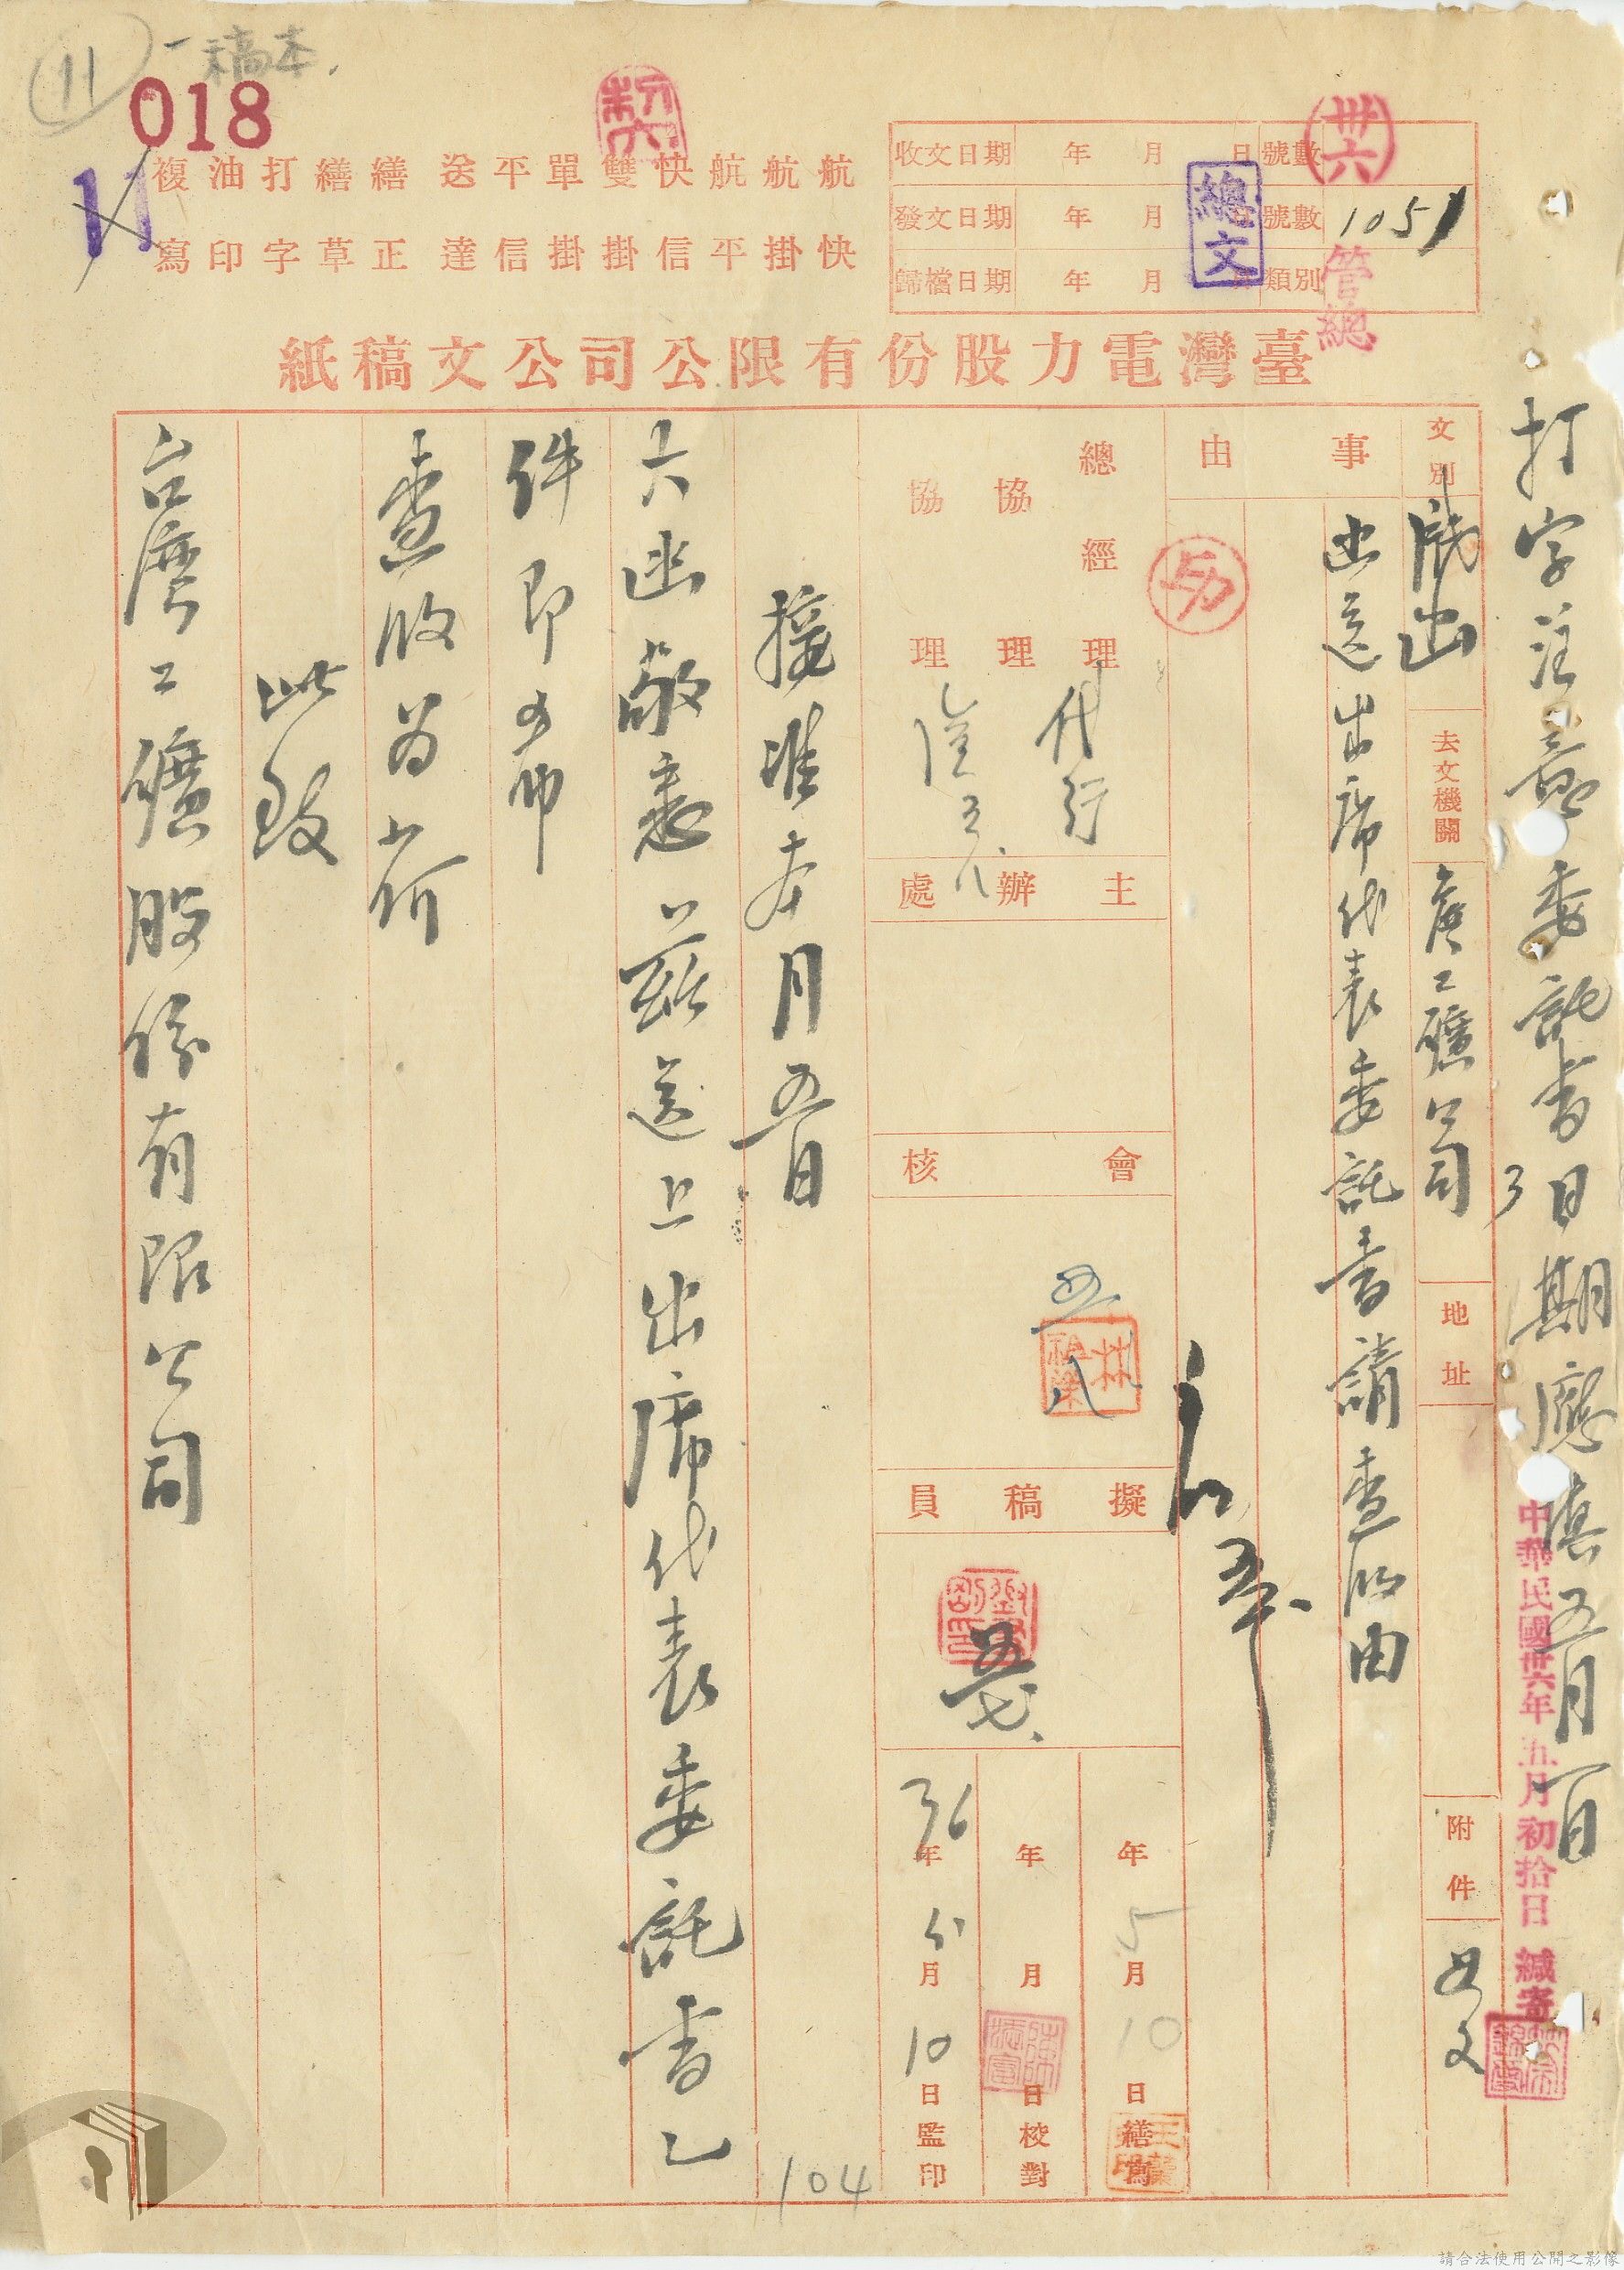 一稿本
11
018
11
航 航 航 快 雙 單 平 送 繕 繕 打 油 複
快 掛 平 信 掛 掛 信 達 正 草 字 印 寫
收文日期 年 月 日 號數
發文日期 年 月 日 號數 1051
歸檔日期 年 月 日 類別
卅六
總文
管總
臺灣電力股份有限公司公文稿紙
打字注意委託書日期應填五月一日
中華民國卅六年五月初拾日 緘寄
文別 箋函
去文機關 台工礦公司
地址
附件 如文
事由
函送出席代表委託書請查收由
總經理
協理
協理
代行
五、八
主辦處
會核
五八
擬稿員
五七
年 5月 10日 繕寫
年 月 日 校對
36年 5月 10日 監印
接准本月五日
大函敬悉茲送上出席代表委託書乙
件即希
查收為荷
此致
台灣工礦股份有限公司
104
請合法使用公開之影像